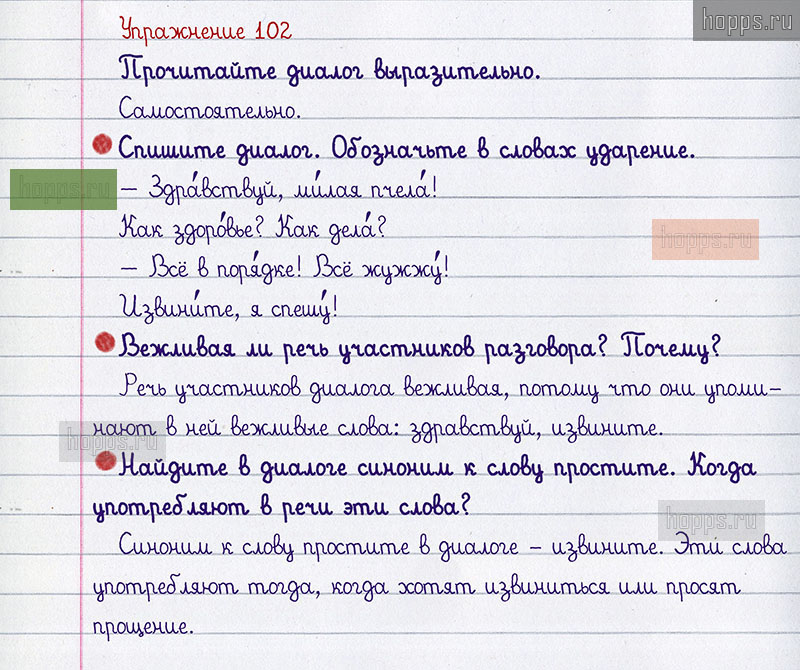 hopps.ru
Упражнение 102
Прочитайте диалог выразительно.
Самостоятельно.
Спишите диалог. Обозначьте в словах ударение.
hopps.ru
— Здра́вствуй, ми́лая пчела́!
Как здоро́вье? Как дела́?
hopps.ru
— Всё в поря́дке! Всё жужжу́!
Извини́те, я спешу́!
Вежливая ли речь участников разговора? Почему?
Речь участников диалога вежливая, потому что они упоми-
нают в ней вежливые слова: здравствуй, извините.
hopps.ru
Найдите в диалоге синоним к слову простите. Когда
употребляют в речи эти слова?
hopps.ru
Синоним к слову простите в диалоге – извините. Эти слова
употребляют тогда, когда хотят извиниться или просят
прощение.